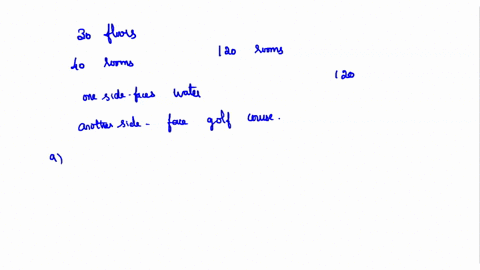 30 floors
40 rooms
120 rooms
120
one side-faces water
another side - face golf course.
a)